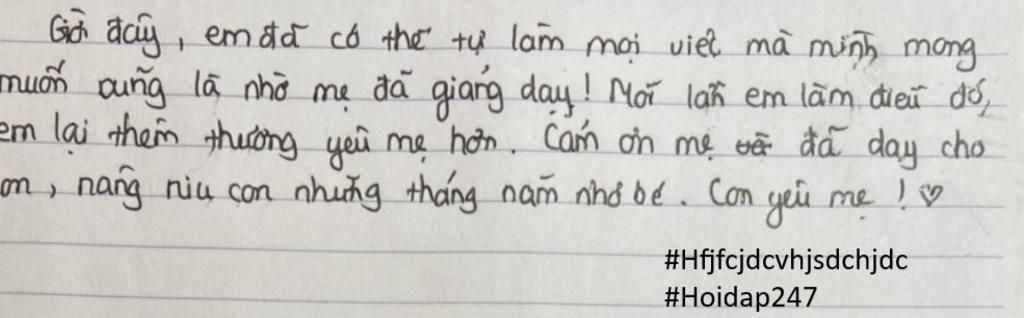 Giờ đây, em đã có thể tự làm mọi việc mà mình mong
muốn cũng là nhờ mẹ đã giảng dạy! Mỗi lần em làm điều đó,
em lại thêm thương yêu mẹ hơn. Cảm ơn mẹ đã dạy cho
on, nâng niu con những tháng năm nhỏ bé. Con yêu mẹ! ♡
#Hfjfcjdcvhjsdchjdc
#Hoidap247